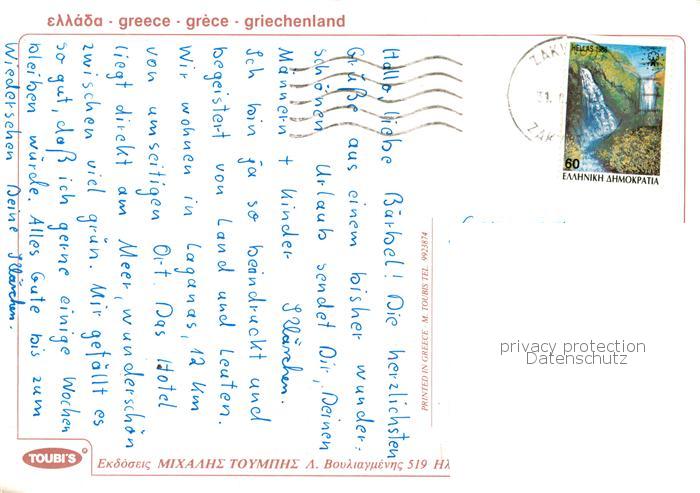 ελλάδα · greece · grèce · griechenland
Hallo, liebe Bärbel! Die herzlichsten
Grüße aus einem bisher wunder-
schönen Urlaub sendet Dir, Deinen
Männern + Kinder Klärchen.
Ich bin ja so beindruckt und
begeistert von Land und Leuten.
Wir wohnen in Laganas, 12 km
von umseitigen Ort. Das Hotel
liegt direkt am Meer, wunderschön
zwischen viel grün. Mir gefällt es
so gut, daß ich gerne einige Wochen
bleiben würde. Alles Gute bis zum
Wiedersehen Deine Klärchen.
HELLAS 1988
60
ΕΛΛΗΝΙΚΗ ΔΗΜΟΚΡΑΤΙΑ
PRINTED IN GREECE · M. TOUBIS TEL. 9923874
privacy protection
Datenschutz
TOUBI'S
Εκδόσεις ΜΙΧΑΛΗΣ ΤΟΥΜΠΗΣ Λ. Βουλιαγμένης 519